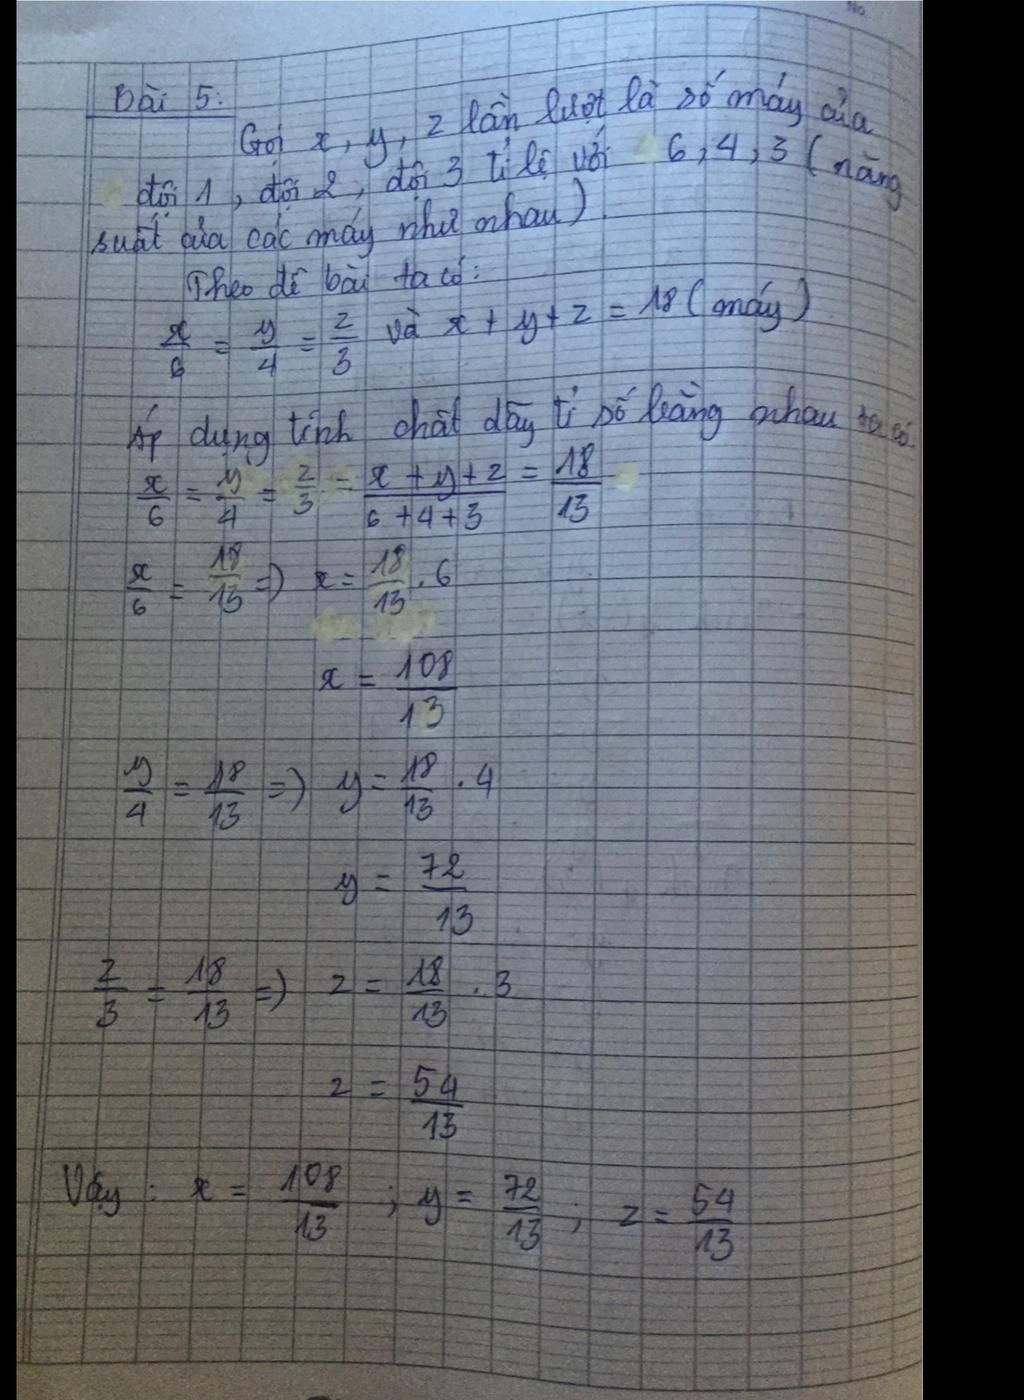 No
Bài 5:
Gọi x, y, z lần lượt là số máy của
đội 1, đội 2, đội 3 tỉ lệ với 6, 4, 3 (năng
suất của các máy như nhau)
Theo đề bài ta có:
x/6 = y/4 = z/3 và x + y + z = 18 (máy)
Áp dụng tính chất dãy tỉ số bằng nhau ta có
x/6 = y/4 = z/3 = (x + y + z)/(6 + 4 + 3) = 18/13
x/6 = 18/13 => x = 18/13 . 6
x = 108/13
y/4 = 18/13 => y = 18/13 . 4
y = 72/13
z/3 = 18/13 => z = 18/13 . 3
z = 54/13
Vậy : x = 108/13 ; y = 72/13 ; z = 54/13